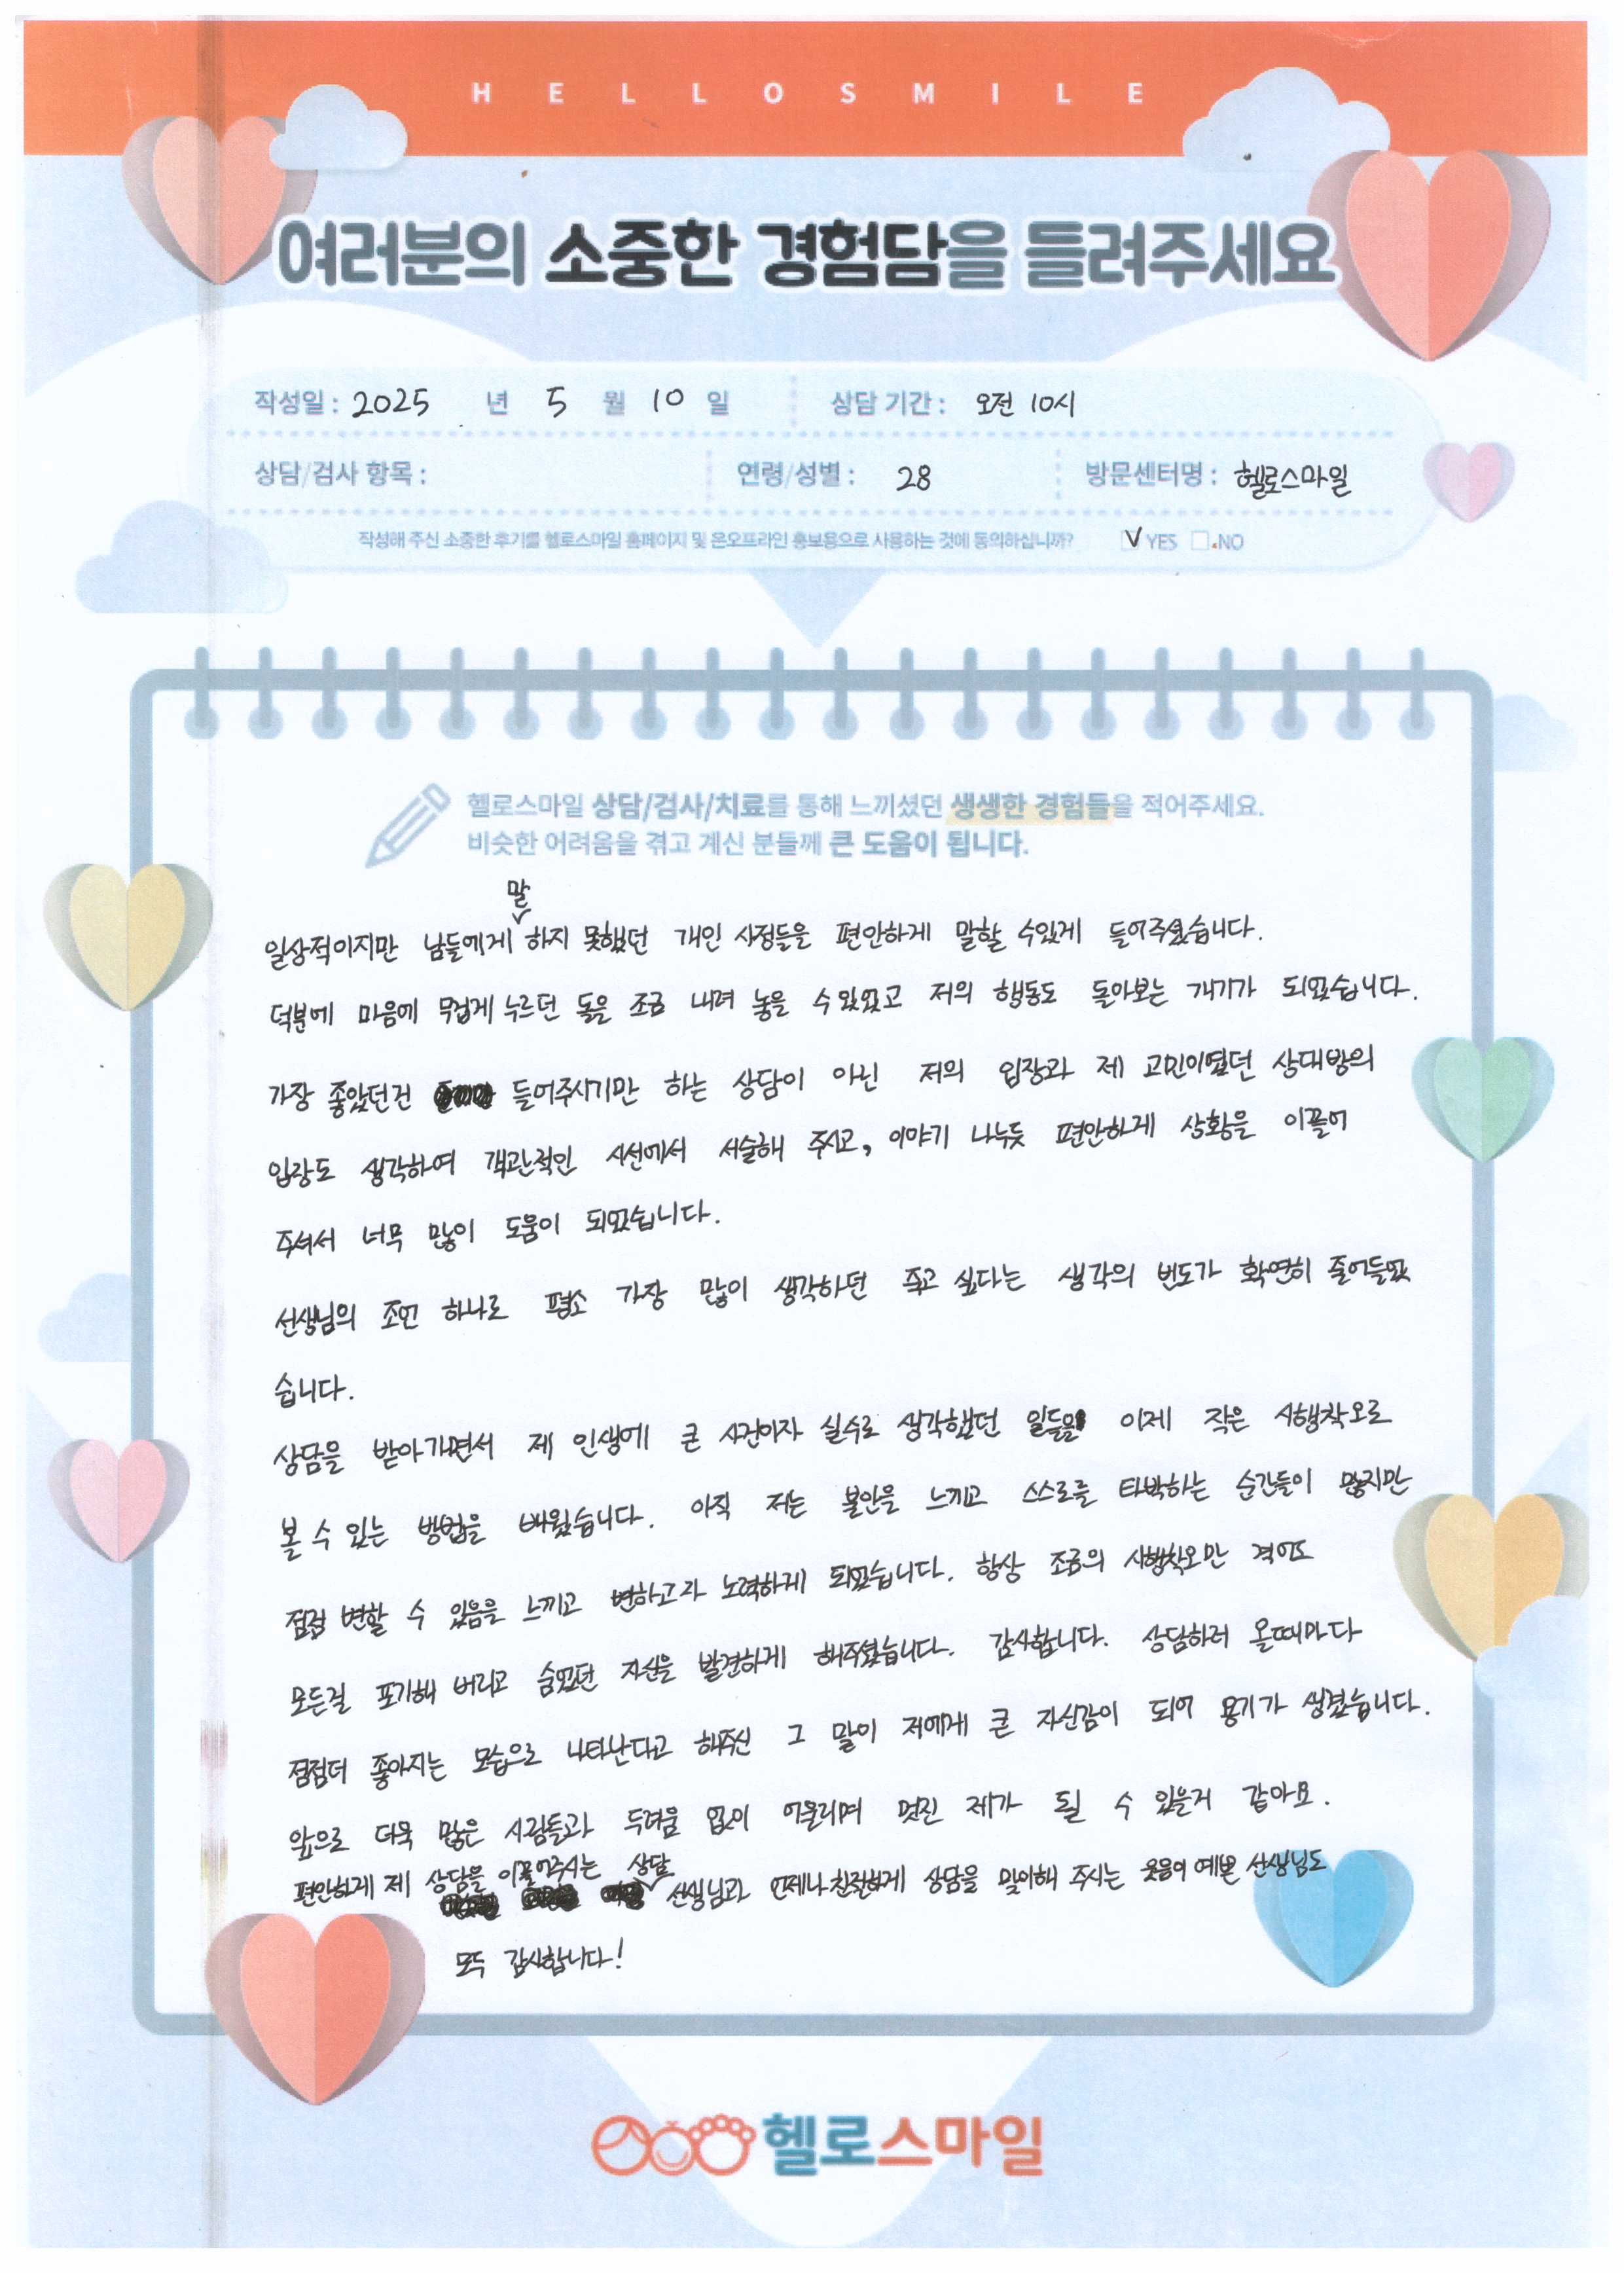 HELLOSMILE
여러분의 소중한 경험담을 들려주세요
작성일 : 2025 년 5 월 10 일 상담 기간 : 오전 10시
상담/검사 항목 : 연령/성별 : 28 방문센터명 : 헬로스마일
작성해 주신 소중한 후기를 헬로스마일 홈페이지 및 온오프라인 홍보용으로 사용하는 것에 동의하십니까? V YES NO
헬로스마일 상담/검사/치료를 통해 느끼셨던 생생한 경험들을 적어주세요.
비슷한 어려움을 겪고 계신 분들께 큰 도움이 됩니다.
일상적이지만 남들에게 말 하지 못했던 개인 사정들을 편안하게 말할 수있게 들어주셨습니다.
덕분에 마음에 무겁게 누르던 돌을 조금 내려 놓을 수 있었고 저의 행동도 돌아보는 계기가 되었습니다.
가장 좋았던건 들어주시기만 하는 상담이 아닌 저의 입장과 제 고민이였던 상대방의
입장도 생각하여 객관적인 시선에서 서술해 주시고, 이야기 나누듯 편안하게 상황을 이끌어
주셔서 너무 많이 도움이 되었습니다.
선생님의 조언 하나로 평소 가장 많이 생각하던 죽고 싶다는 생각의 빈도가 확연히 줄어들었
습니다.
상담을 받아가면서 제 인생에 큰 사건이자 실수로 생각했던 일들을 이제 작은 시행착오로
볼 수 있는 방법을 배웠습니다. 아직 저는 불안을 느끼고 스스로를 타박하는 순간들이 많지만
점점 변할 수 있음을 느끼고 변하고자 노력하게 되었습니다. 항상 조금의 시행착오만 겪어도
모든걸 포기해 버리고 숨었던 자신을 발견하게 해주셨습니다. 감사합니다. 상담하러 올때마다
점점더 좋아지는 모습으로 나타난다고 해주신 그 말이 저에게 큰 자신감이 되어 용기가 생겼습니다.
앞으로 더욱 많은 사람들과 두려움 없이 어울리며 멋진 제가 될 수 있을거 같아요.
편안하게 제 상담을 이끌어주시는 상담 선생님과 언제나 친절하게 상담을 맞이해 주시는 웃음이 예쁜 선생님도
모두 감사합니다!
헬로스마일